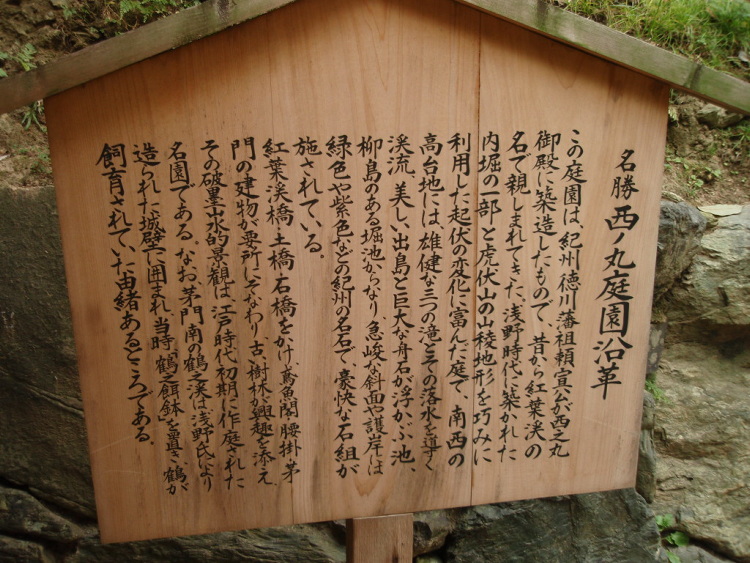 名勝 西ノ丸庭園沿革
この庭園は、紀州徳川藩祖頼宣公が西之丸
御殿に築造したもので、昔から紅葉渓の
名で親しまれてきた、浅野時代に築かれた
内堀の一部と虎伏山の山稜地形を巧みに
利用した起伏の変化に富んだ庭で、南西の
高台地には、雄健な三つの滝とその落水を導く
渓流、美しい出島と巨大な舟石が浮かぶ池、
柳島のある堀池からなり、急峻な斜面や護岸には
緑色や紫色などの紀州の名石で、豪快な石組が
施されている。
紅葉渓橋・土橋・石橋をかけ、鳶魚閣、腰掛、茅
門の建物が要所にそなわり、古い樹林が興趣を添え、
その破墨山水的景観は、江戸時代初期に作庭された
名園である。なお茅門南の鶴之渓は浅野氏により
造られた城壁に囲まれ、当時「鶴之餌鉢」を置き、鶴が
飼育されていた由緒あるところである。